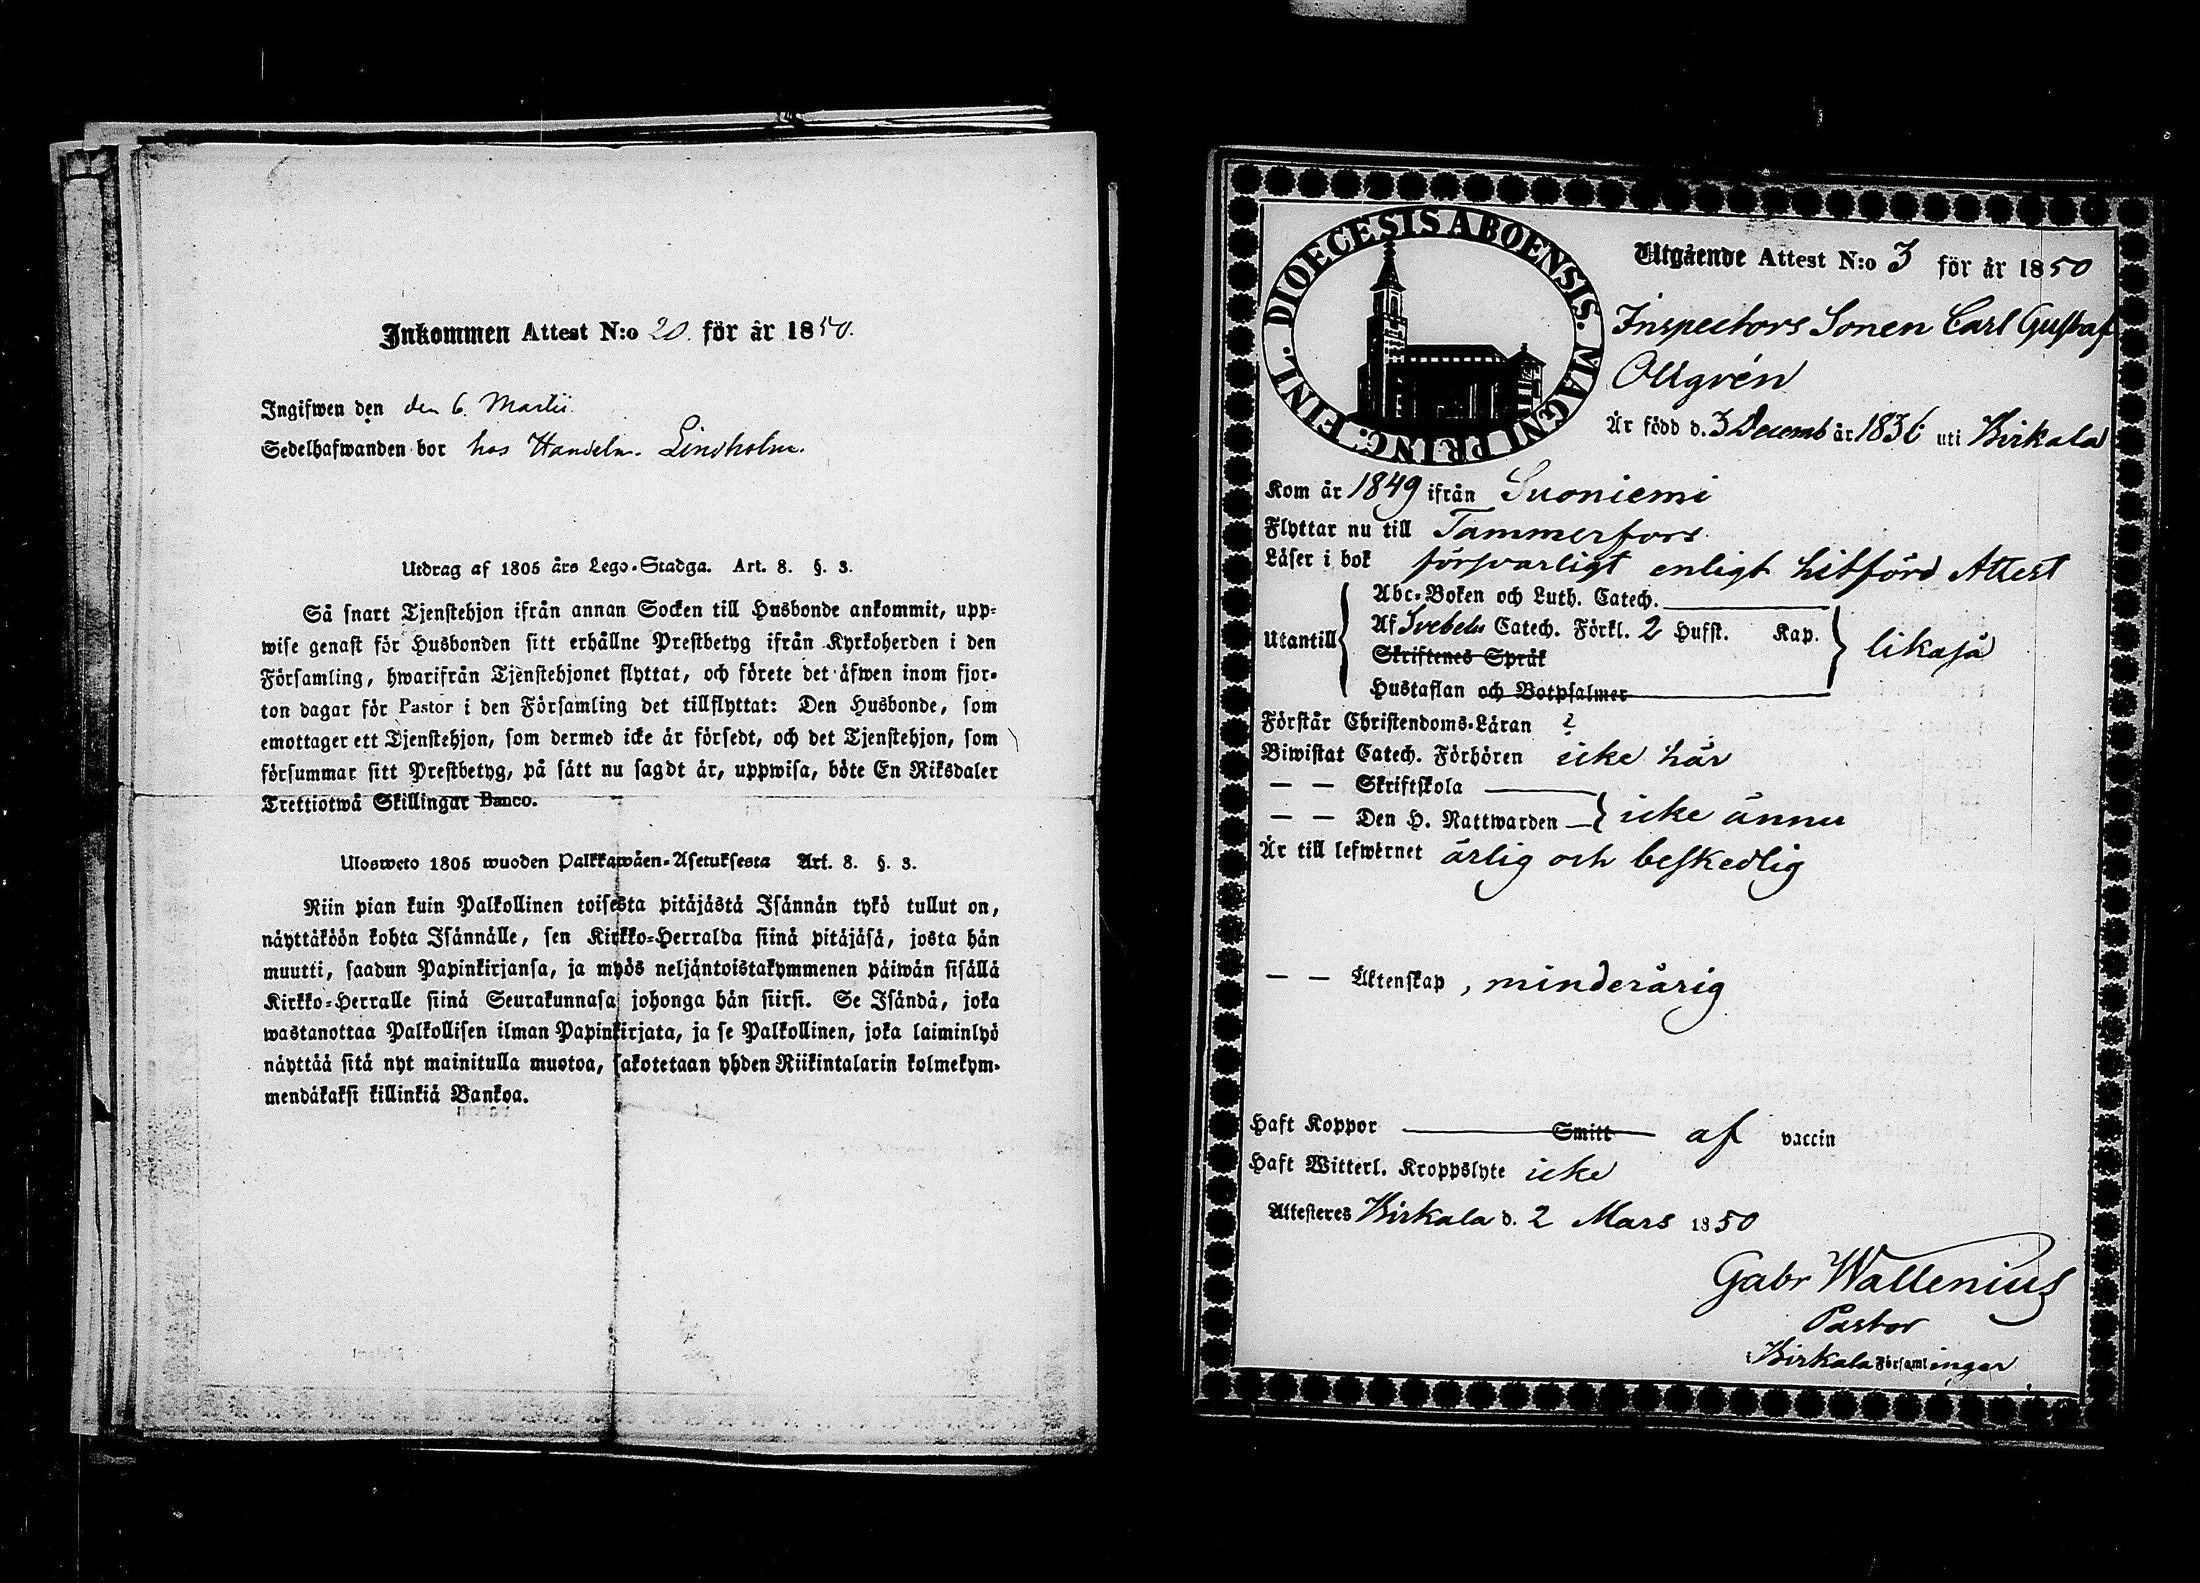 Inkommen Attest N:o 20. för år 1850.
Ingifwen den den 6. Martii
Sedelhafwanden bor hos Handelm. Lindholm.
Utdrag af 1805 års Lego-Stadga. Art. 8. §. 3.
Så snart Tjenstehjon ifrån annan Socken till Husbonde ankommit, upp-
wise genast för Husbonden sitt erhållne Prestbetyg ifrån Kyrkoherden i den
Församling, hwarifrån Tjenstehjonet flyttat, och förete det äfwen inom fjor-
ton dagar för Pastor i den Församling det tillflyttat: Den Husbonde, som
emottager ett Tjenstehjon, som dermed icke är försedt, och det Tjenstehjon, som
försummar sitt Prestbetyg, på sätt nu sagdt är, uppwisa, böte En Riksdaler
Trettiotwå Skillingar Banco.
Ulosweto 1805 wuoden Palkkawäen-Asetuksesta Art. 8. §. 3.
Niin pian kuin Palkollinen toisesta pitäjästä Isännän tykö tullut on,
näyttäköön kohta Isännälle, sen Kirkko-Herralda siinä pitäjäsä, josta hän
muutti, saadun Papinkirjansa, ja myös neljäntoistakymmenen päiwän sisällä
Kirkko-Herralle siinä Seurakunnasa johonga hän siirsi. Se Isändä, joka
wastanottaa Palkollisen ilman Papinkirjata, ja se Palkollinen, joka laiminlyö
näyttää sitä nyt mainitulla muotoa, sakotetaan yhden Riikintalarin kolmekym-
mendäkaksi killinkiä Bankoa.
DIOECESIS ABOENSIS. MAGNI PRINC. FINL.
Utgående Attest N:o 3 för år 1850
Inspectors Sonen Carl Gustaf
Ollgrén
Är född d. 3 Decemb år 1836 uti Birkala
Kom år 1849 ifrån Suoniemi
Flyttar nu till Tammerfors
Läser i bok försvarligt enligt hitförd Attest
Abc-Boken och Luth. Catech.
Utantill Af Svebelii Catech. Förkl. 2 Hufst. Kap. likaså
Skriftenes Språk
Hustaflan och Botpsalmer
Förstår Christendoms-Läran ?
Biwistat Catech. Förhören icke här
— — Skriftskola
— — Den H. Nattwarden icke ännu
Är till lefwernet ärlig och beskedlig
— — Äktenskap, minderårig
Haft Koppor Smitt af vaccin
Haft Witterl. Kroppslyte icke
Attesteres Birkala d. 2 Mars 1850
Gabr Wallenius
Pastor
i Birkala Församlingar